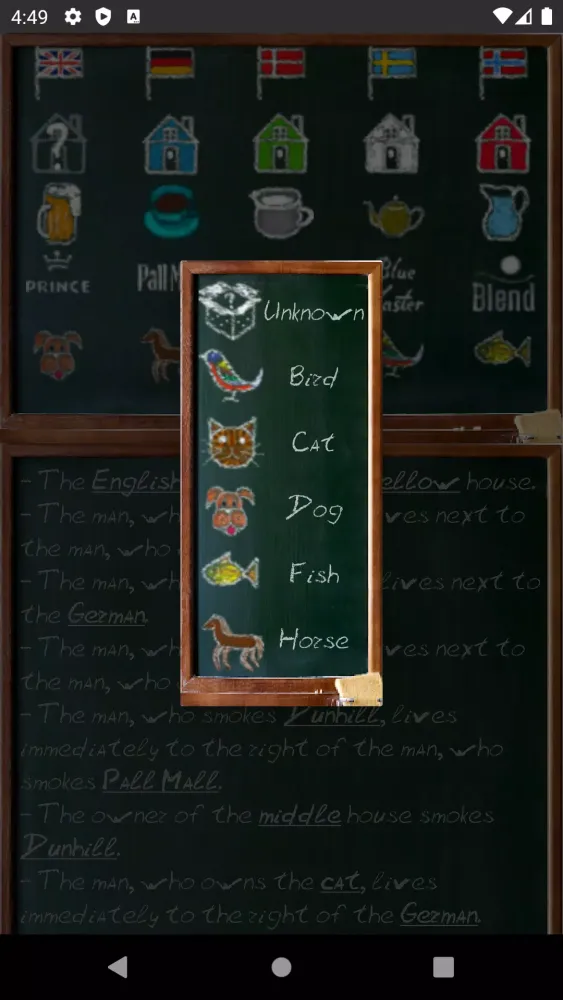 4:49
A
?
PRINCE
Pall M
Blue
aster
Blend
?
Unknown
Bird
Cat
Dog
Fish
Horse
- The English ellow house.
- The man, wh ves next to
the man, who
- The man, wh lives next to
the German.
- The man, wh ves next to
the man, who
- The man, who smokes Dunhill, lives
immediately to the right of the man, who
smokes Pall Mall.
- The owner of the middle house smokes
Dunhill.
- The man, who owns the cat, lives
immediately to the right of the German.